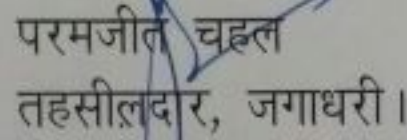 परमजीत चहल
तहसीलदार, जगाधरी।